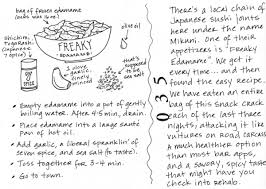 bag of frozen edamame
(ours was 12 oz.)
olive oil
Shichimi
Togarashi
(Japanese
7 spice)
FREAKY
EDAMAME
7
SPICE
1 clove,
garlic,
finely
minced
that's
supposed
to be
sea salt
• Empty edamame into a pot of gently
boiling water. After 4-5 min, drain.
• Place edamame to a large sauté
pan of hot oil.
• Add garlic, a liberal sprinklin' of
seven spice, and sea salt (to taste).
• Toss together for 3-4 min.
• Go to town.
035
There's a local chain of
Japanese sushi joints
here under the name
Mikuni. One of their
appetizers is "Freaky
Edamame". We get it
every time... and then
found the easy recipe.
We have eaten an entire
bag of this snack crack
each of the last three
nights, attacking it like
vultures on road carcass.
A much healthier option
than most bar apps,
and a savory, spicy taste
that might have you
check into rehab.